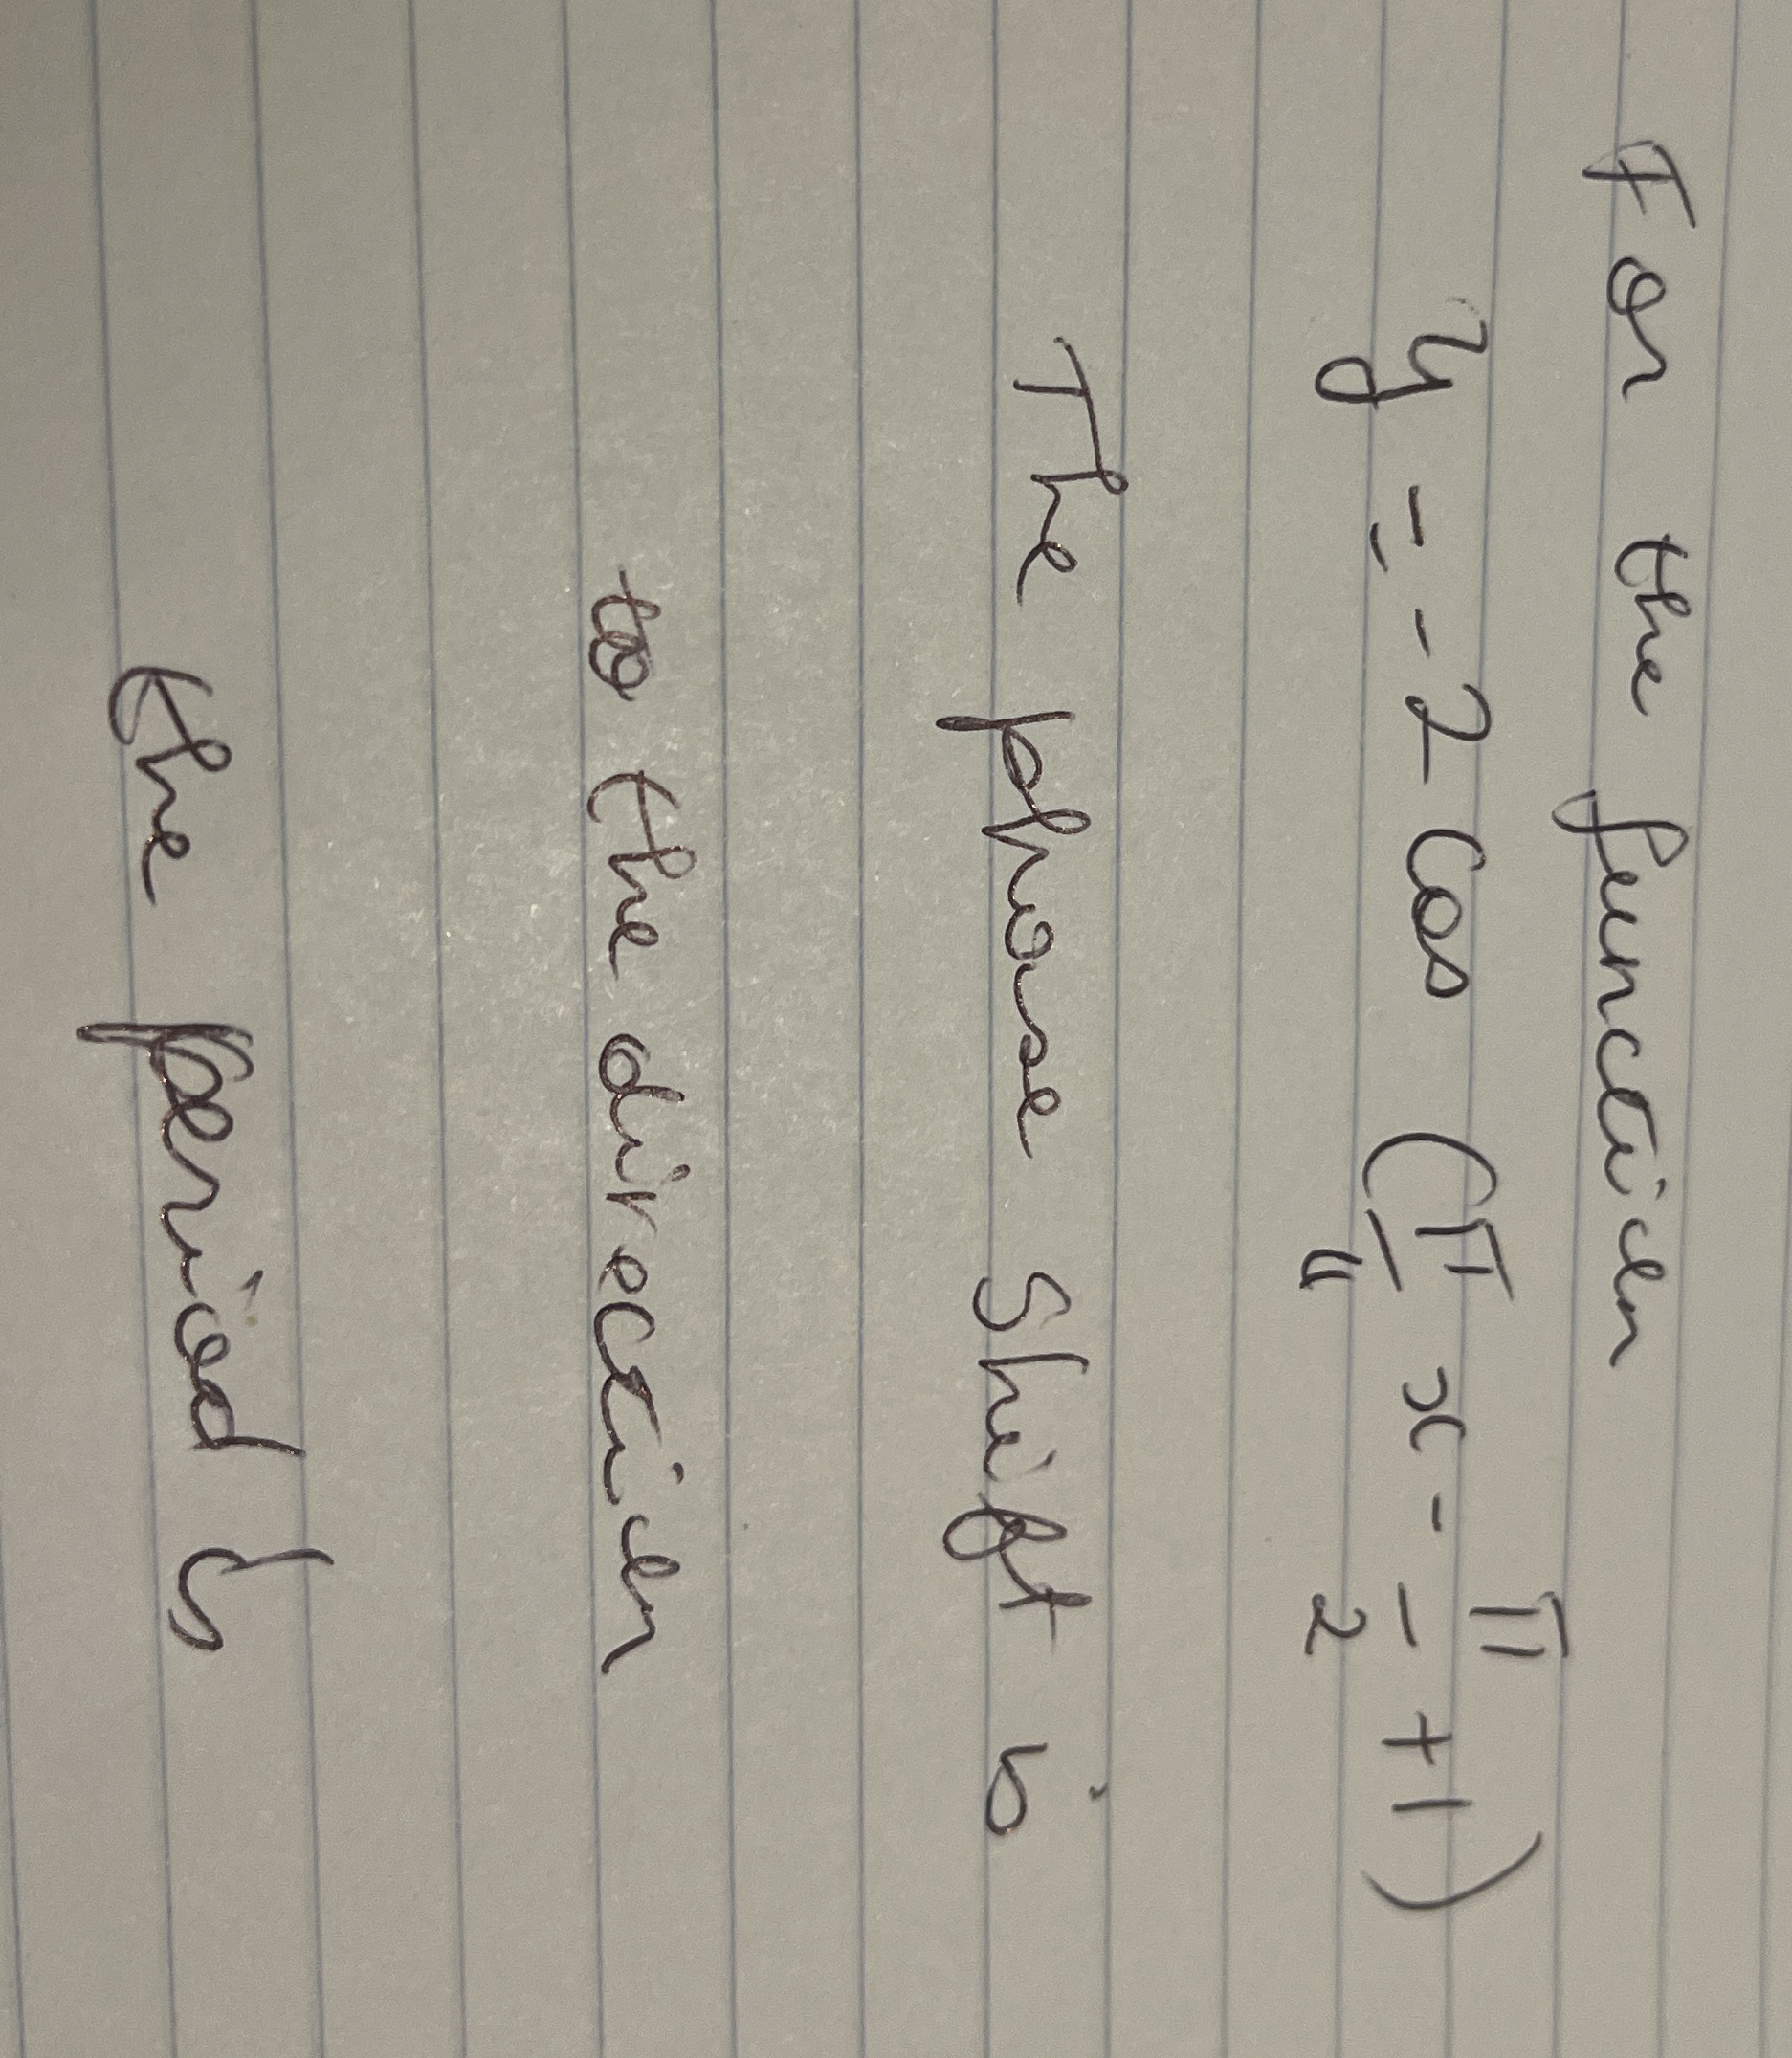 For the function
y = -2 cos (π/4 x - π/2 +1)
The phase shift is
to the direction
the period is